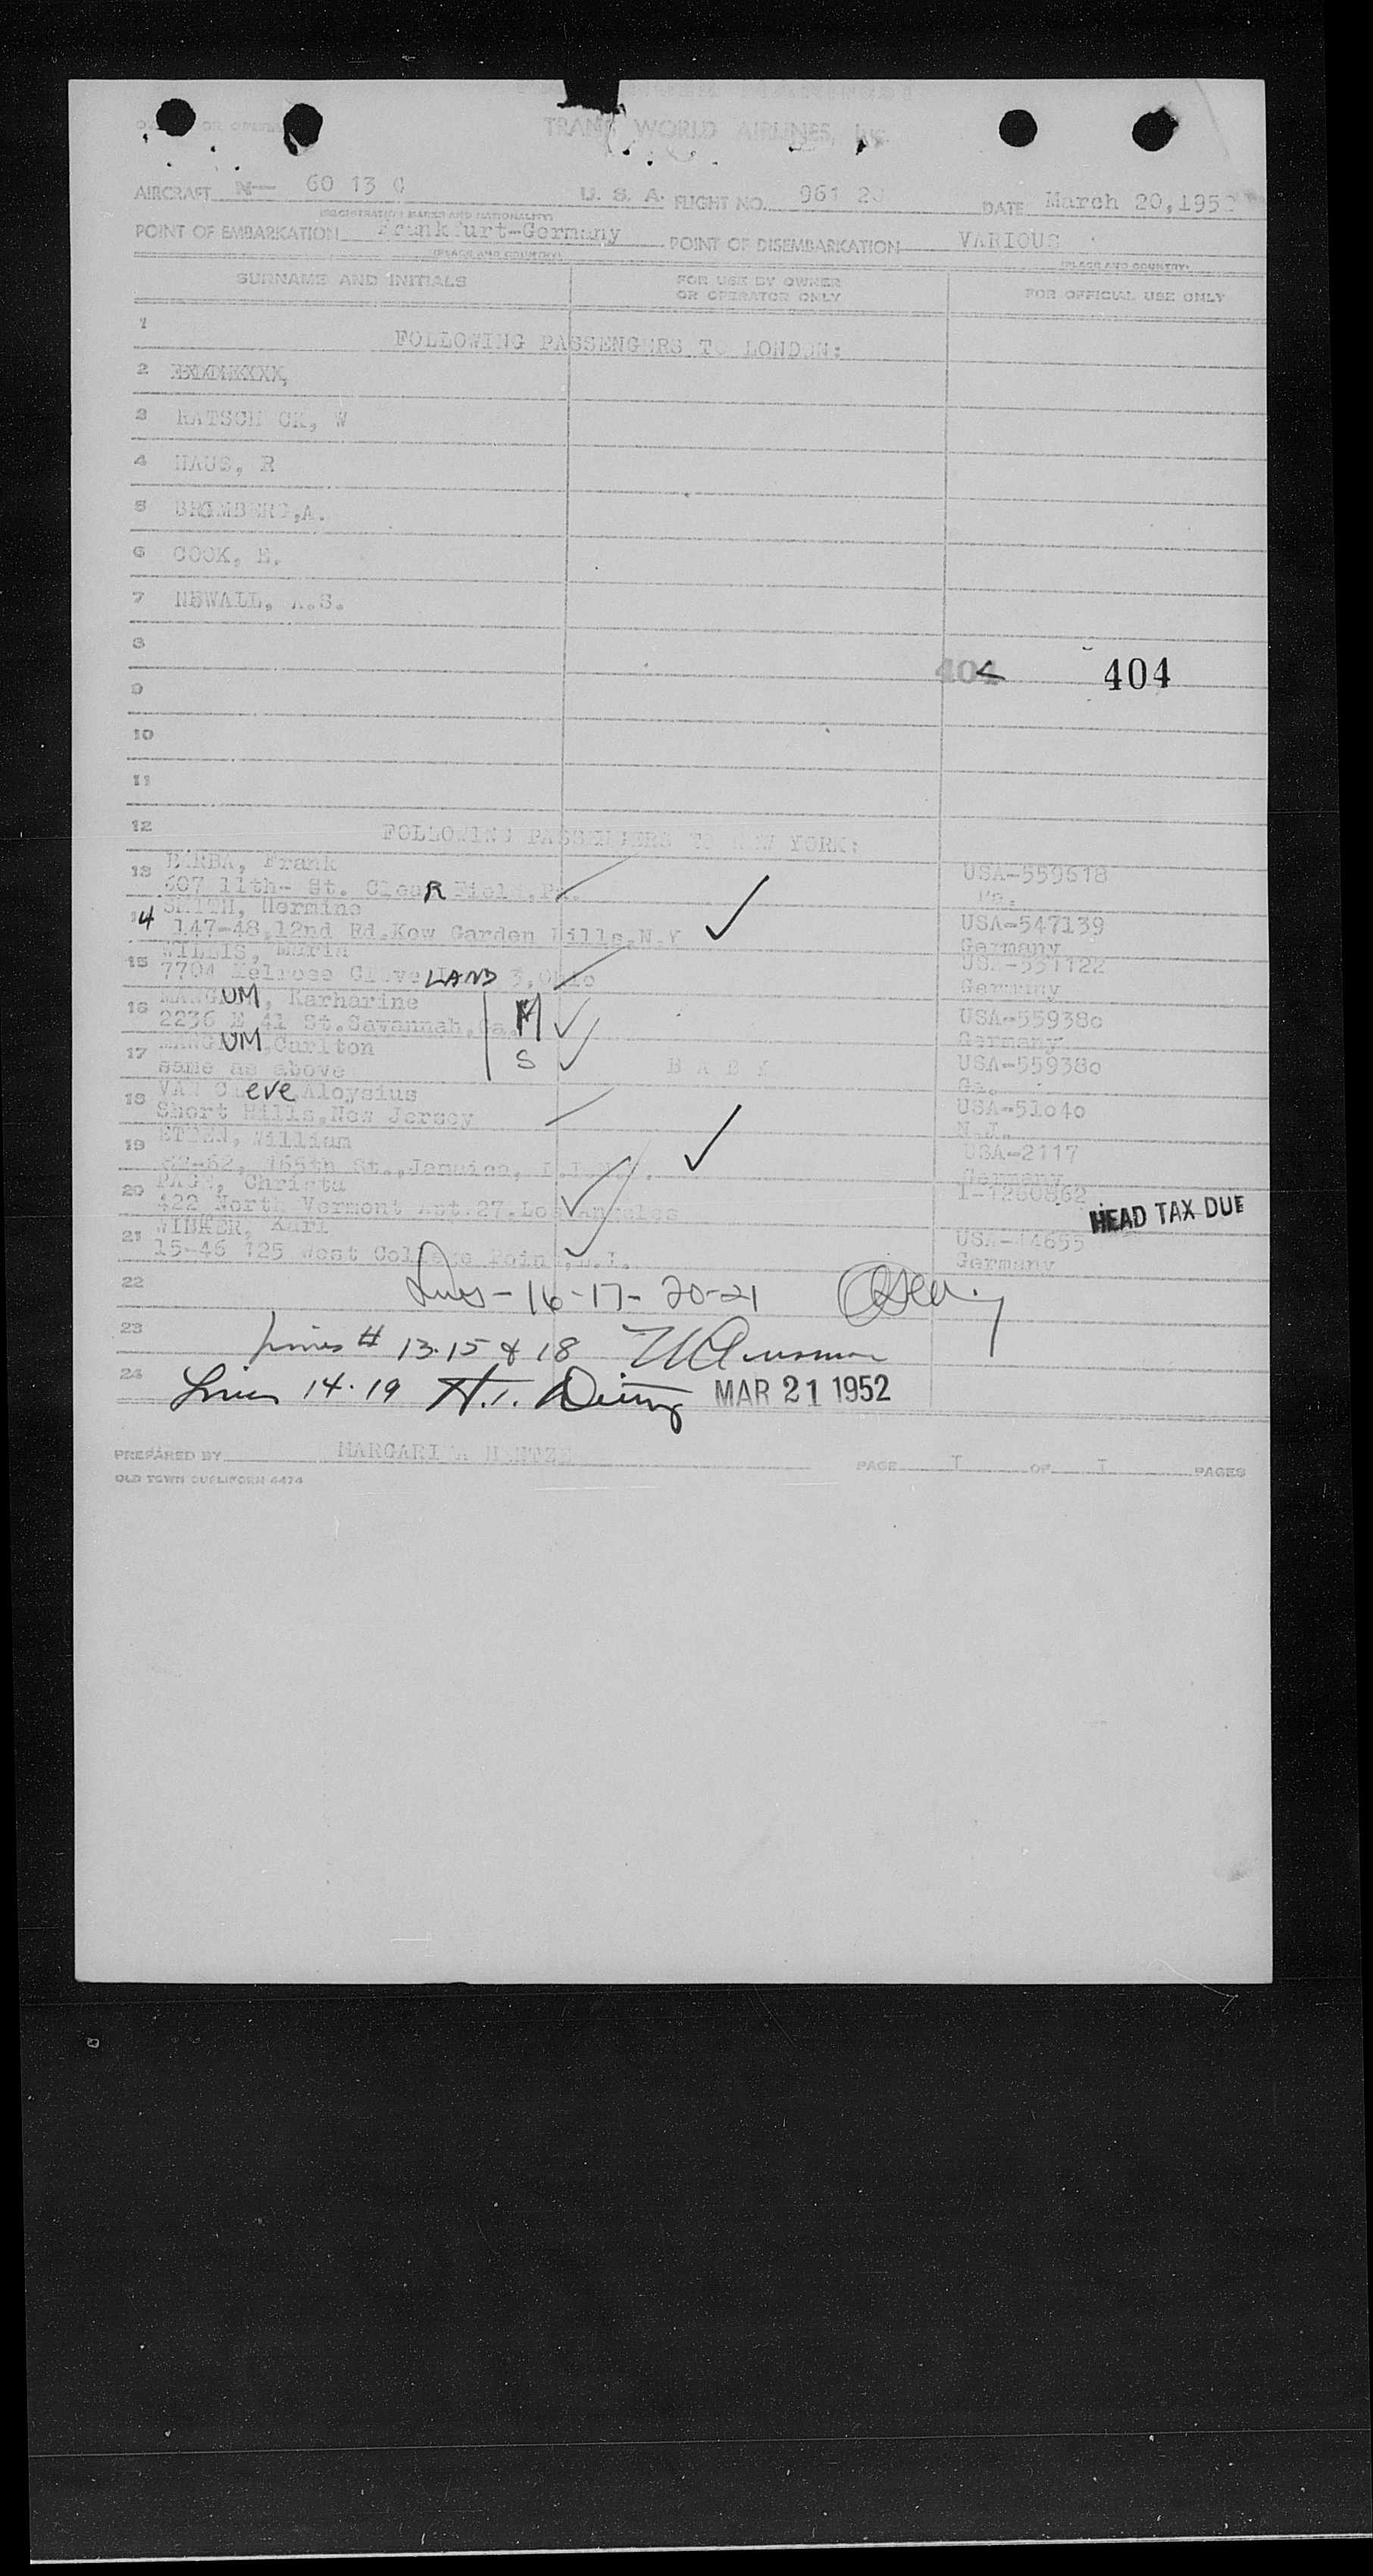 TRANS WORLD AIRLINES, Inc.
OR OPERATOR
AIRCRAFT N— 60 13 C U. S. A. FLIGHT NO. 961 20 DATE March 20,1952
(REGISTRATION MARKS AND NATIONALITY)
POINT OF EMBARKATION Frankfurt-Germany POINT OF DISEMBARKATION VARIOUS
(PLACE AND COUNTRY) (PLACE AND COUNTRY)
SURNAME AND INITIALS FOR USE BY OWNER OR OPERATOR ONLY FOR OFFICIAL USE ONLY
1 FOLLOWING PASSENGERS TO LONDON:
2
3 RATSCH CK, W
4 HAUS, R
5 BROMBERG,A.
6 COOK, H.
7 NEWALL, A.S.
8
404 404
9
10
11
12 FOLLOWING PASSENGERS TO NEW YORK:
13 BARBA, Frank USA-559618
607 11th- St. CleaR Field,Pa. Pa.
14 SMITH, Hermine USA-547139
147-48,12nd Rd.Kew Garden Hills,N.Y Germany
15 WILLIS, Maria USA-551122
7704 Melrose CleveLAND 3,Ohio Germany
16 MANGUM, Karharine M USA-55938o
2236 E 41 St.Savannah,Ga. Germany
17 MANGUM,Carlton S B A B Y USA-55938o
same as above Ga.
18 VAN Cleve,Aloysius USA-51o4o
Short Hills,New Jersey N.J.
19 William USA-2117
165th St.,Jamaica, Germany
20 PAGN, Christa I-1260862
422 North Vermont Apt 27.Los Angeles HEAD TAX DUE
21 Karl USA-14655
15-46 125 West College Point,L.I. Germany
22 Lines - 16-17- 20-21
23 Lines # 13-15 & 18
24 Lines 14-19 MAR 21 1952
PREPARED BY MARGARITA PAGE I OF I PAGES
OLD TOWN DUPLIFORM 6474